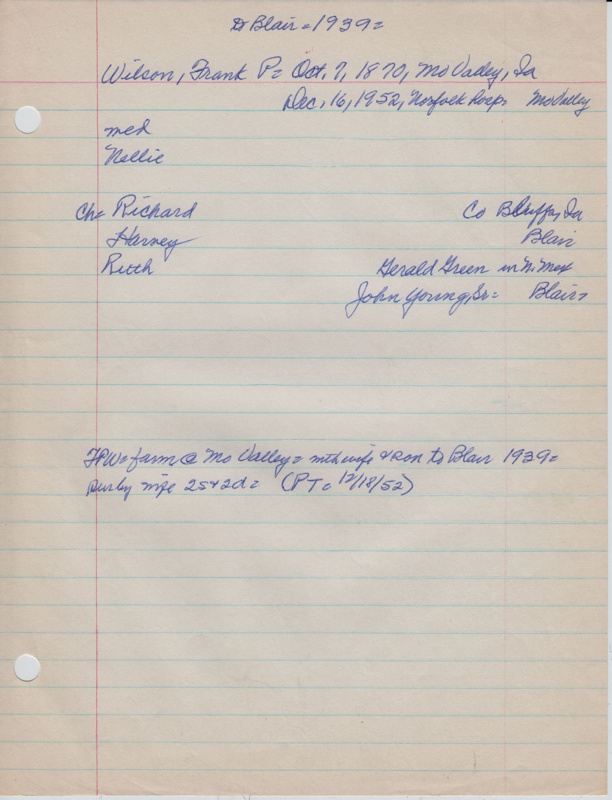 to Blair = 1939=
Wilson, Frank P= Oct. 7, 1870, Mo Valley, Ia
Dec, 16, 1952, Norfolk Hosp= Mo Valley
med
Nellie
Ch= Richard Co Bluffs, Ia
Harvey Blair
Ruth Gerald Green in N. Mex
John Young, Sr= Blair=
FPW= farm @ Mo Valley= mth wife & son to Blair 1939=
surby wife 2s&2d= (PT= 12/18/52)